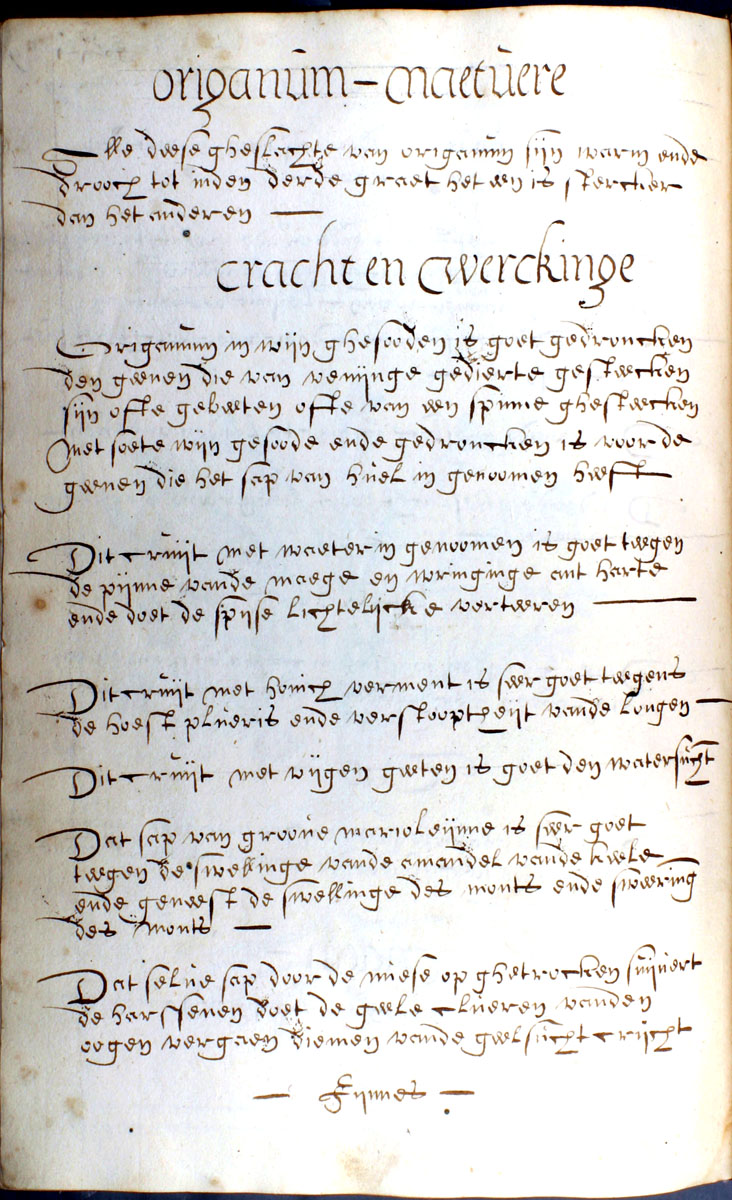 origanúm – naetúere
Alle deese gheslachte van origanum sijn warm ende
drooch tot inden derde graet het een is stercker
dan het anderen —
cracht en werckinge
Origanum in wijn ghesooden is goet gedroncken
den geenen die van venijnge gedierte gesteecken
sijn ofte gebeeten ofte van een spinne ghesteecken
Met soete wijn gesoode ende gedroncken is voor de
geenen die het sap van huel in genoomen heeft —
Dit cruijt met waeter in genoomen is goet teegen
de pijnne vande maege en wringinge ant harte
ende doet de spijse lichtelijcke verteeren —
Dit cruijt met honich verment is seer goet teegens
de hoest plueris ende verstooptheijt vande longen —
Dit cruijt met vijgen geeten is goet den watersúcht
Dat sap van groone marioleijnne is seer goet
teegen de swellinge vande amandel vande keele
ende geneest de swellinge des monts ende sweering
des monts —
Dat selue sap door de nuese op ghetrocken suijuert
de harssenen doet de geele clueren vanden
oogen vergaen diemen vande geelsúcht crijcht
— Fijnnes —